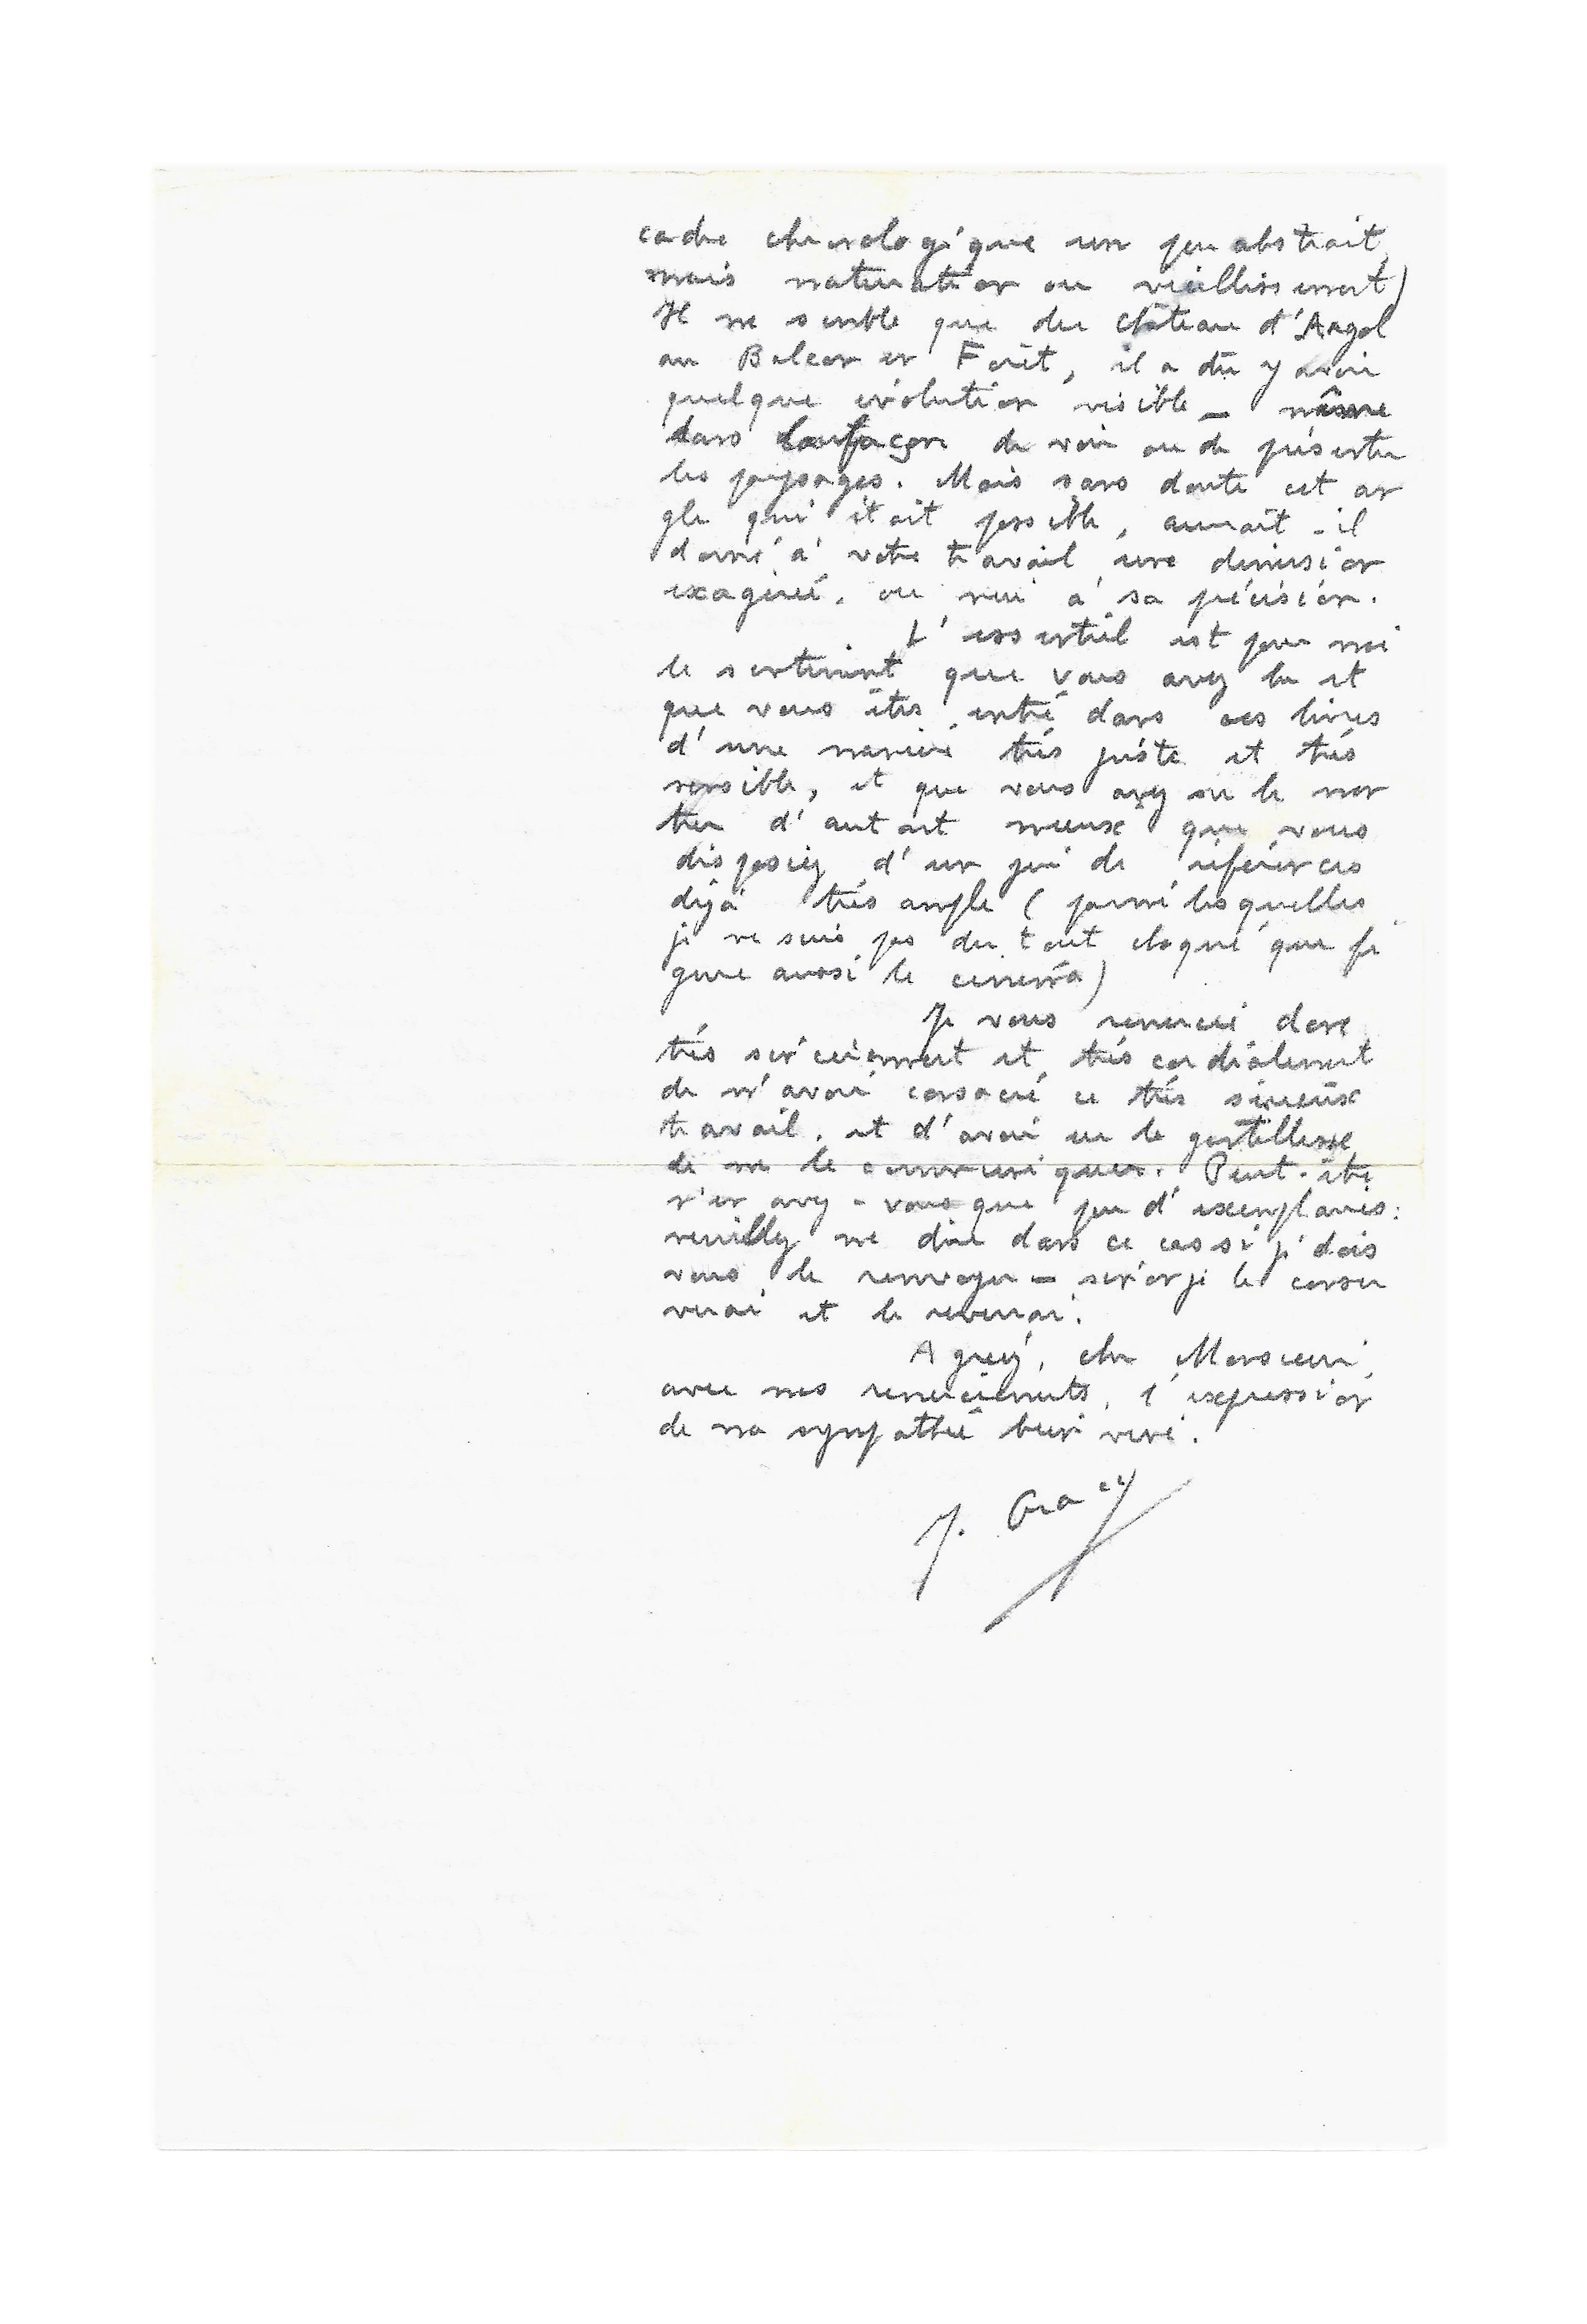 cadre chronologique un peu abstrait,
mais maturation ou vieillissement)
Il me semble que du château d'Argol
au Balcon en Forêt, il a dû y avoir
quelque évolution visible – même
dans la façon de voir ou de présenter
les paysages. Mais sans doute cet an
gle qui était possible, aurait-il
donné à votre travail une dimension
exagérée, ou nui à sa précision.
L'essentiel est pour moi
le sentiment que vous avez lu et
que vous êtes entré dans ces livres
d'une manière très juste et très
sensible, et que vous avez su le mon
trer d'autant mieux que vous
disposiez d'un jeu de références
déjà très ample (parmi lesquelles
je ne suis pas du tout choqué que fi
gure aussi le cinéma)
Je vous remercie donc
très sincèrement et très cordialement
de m'avoir consacré ce très sérieux
travail, et d'avoir eu la gentillesse
de me le communiquer. Peut-être
n'en avez-vous que peu d'exemplaires :
veuillez me dire dans ce cas si je dois
vous le renvoyer – sinon je le conser
verai et le reverrai.
Agréez, cher Monsieur,
avec mes remerciements, l'expression
de ma sympathie bien vive.
J. Gracq